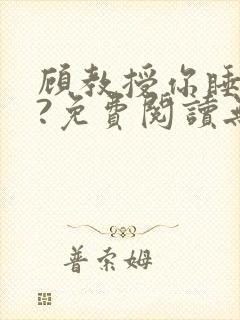 顾教授你睡
?免費閱讀
普索姆